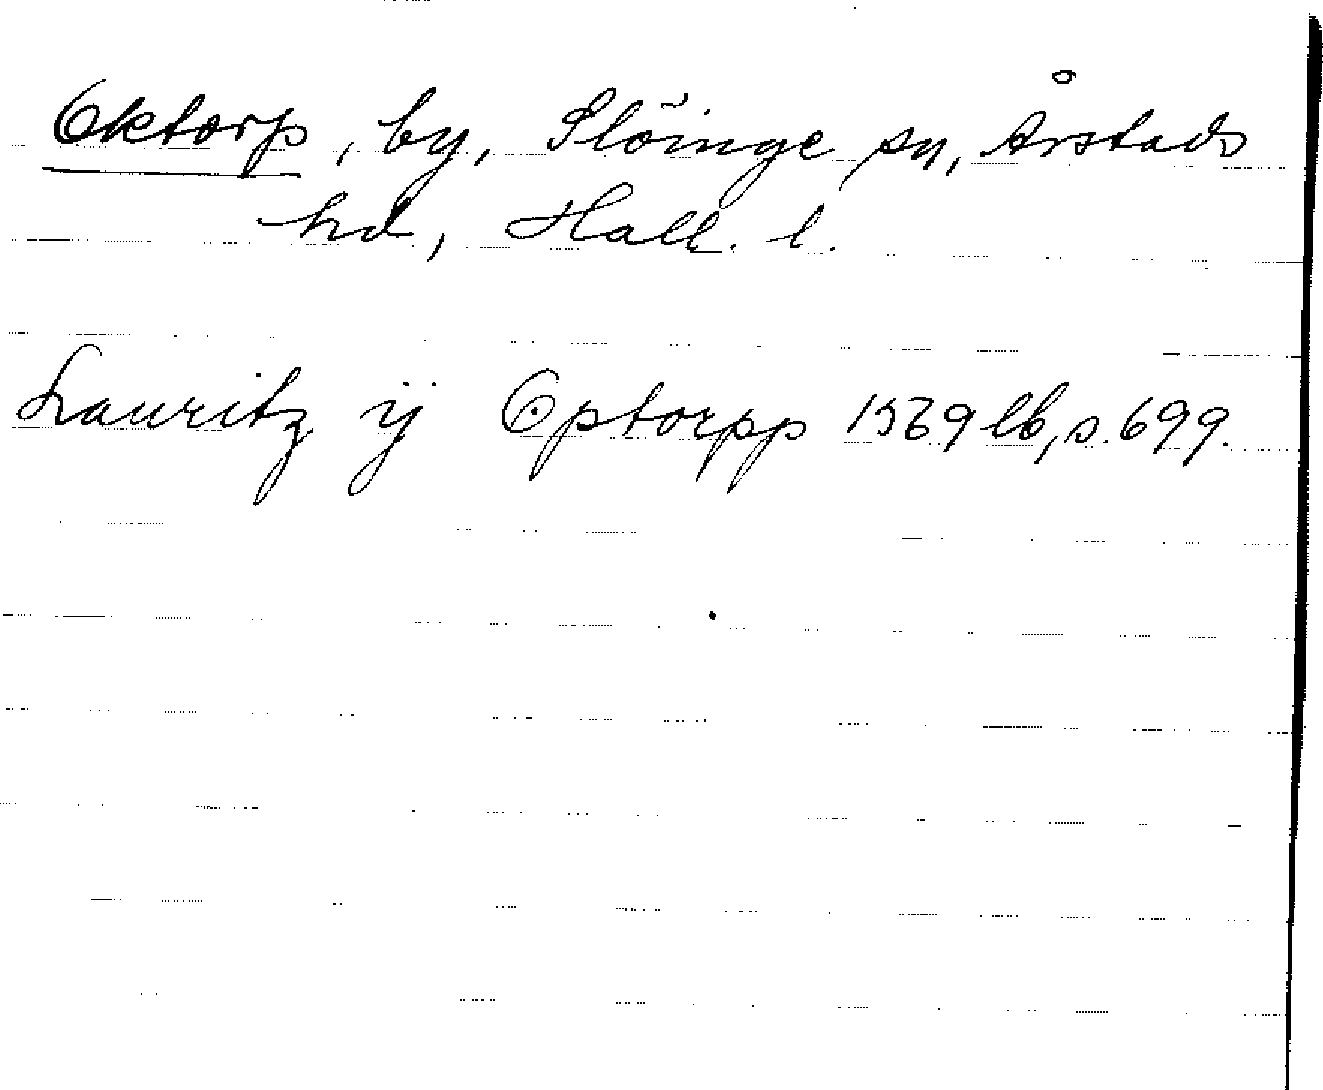 Oktorp, by, Slöinge sn, Årstads
hd, Hall. l.
Lauritz ÿ Optorpp 1569 lb, s. 699.